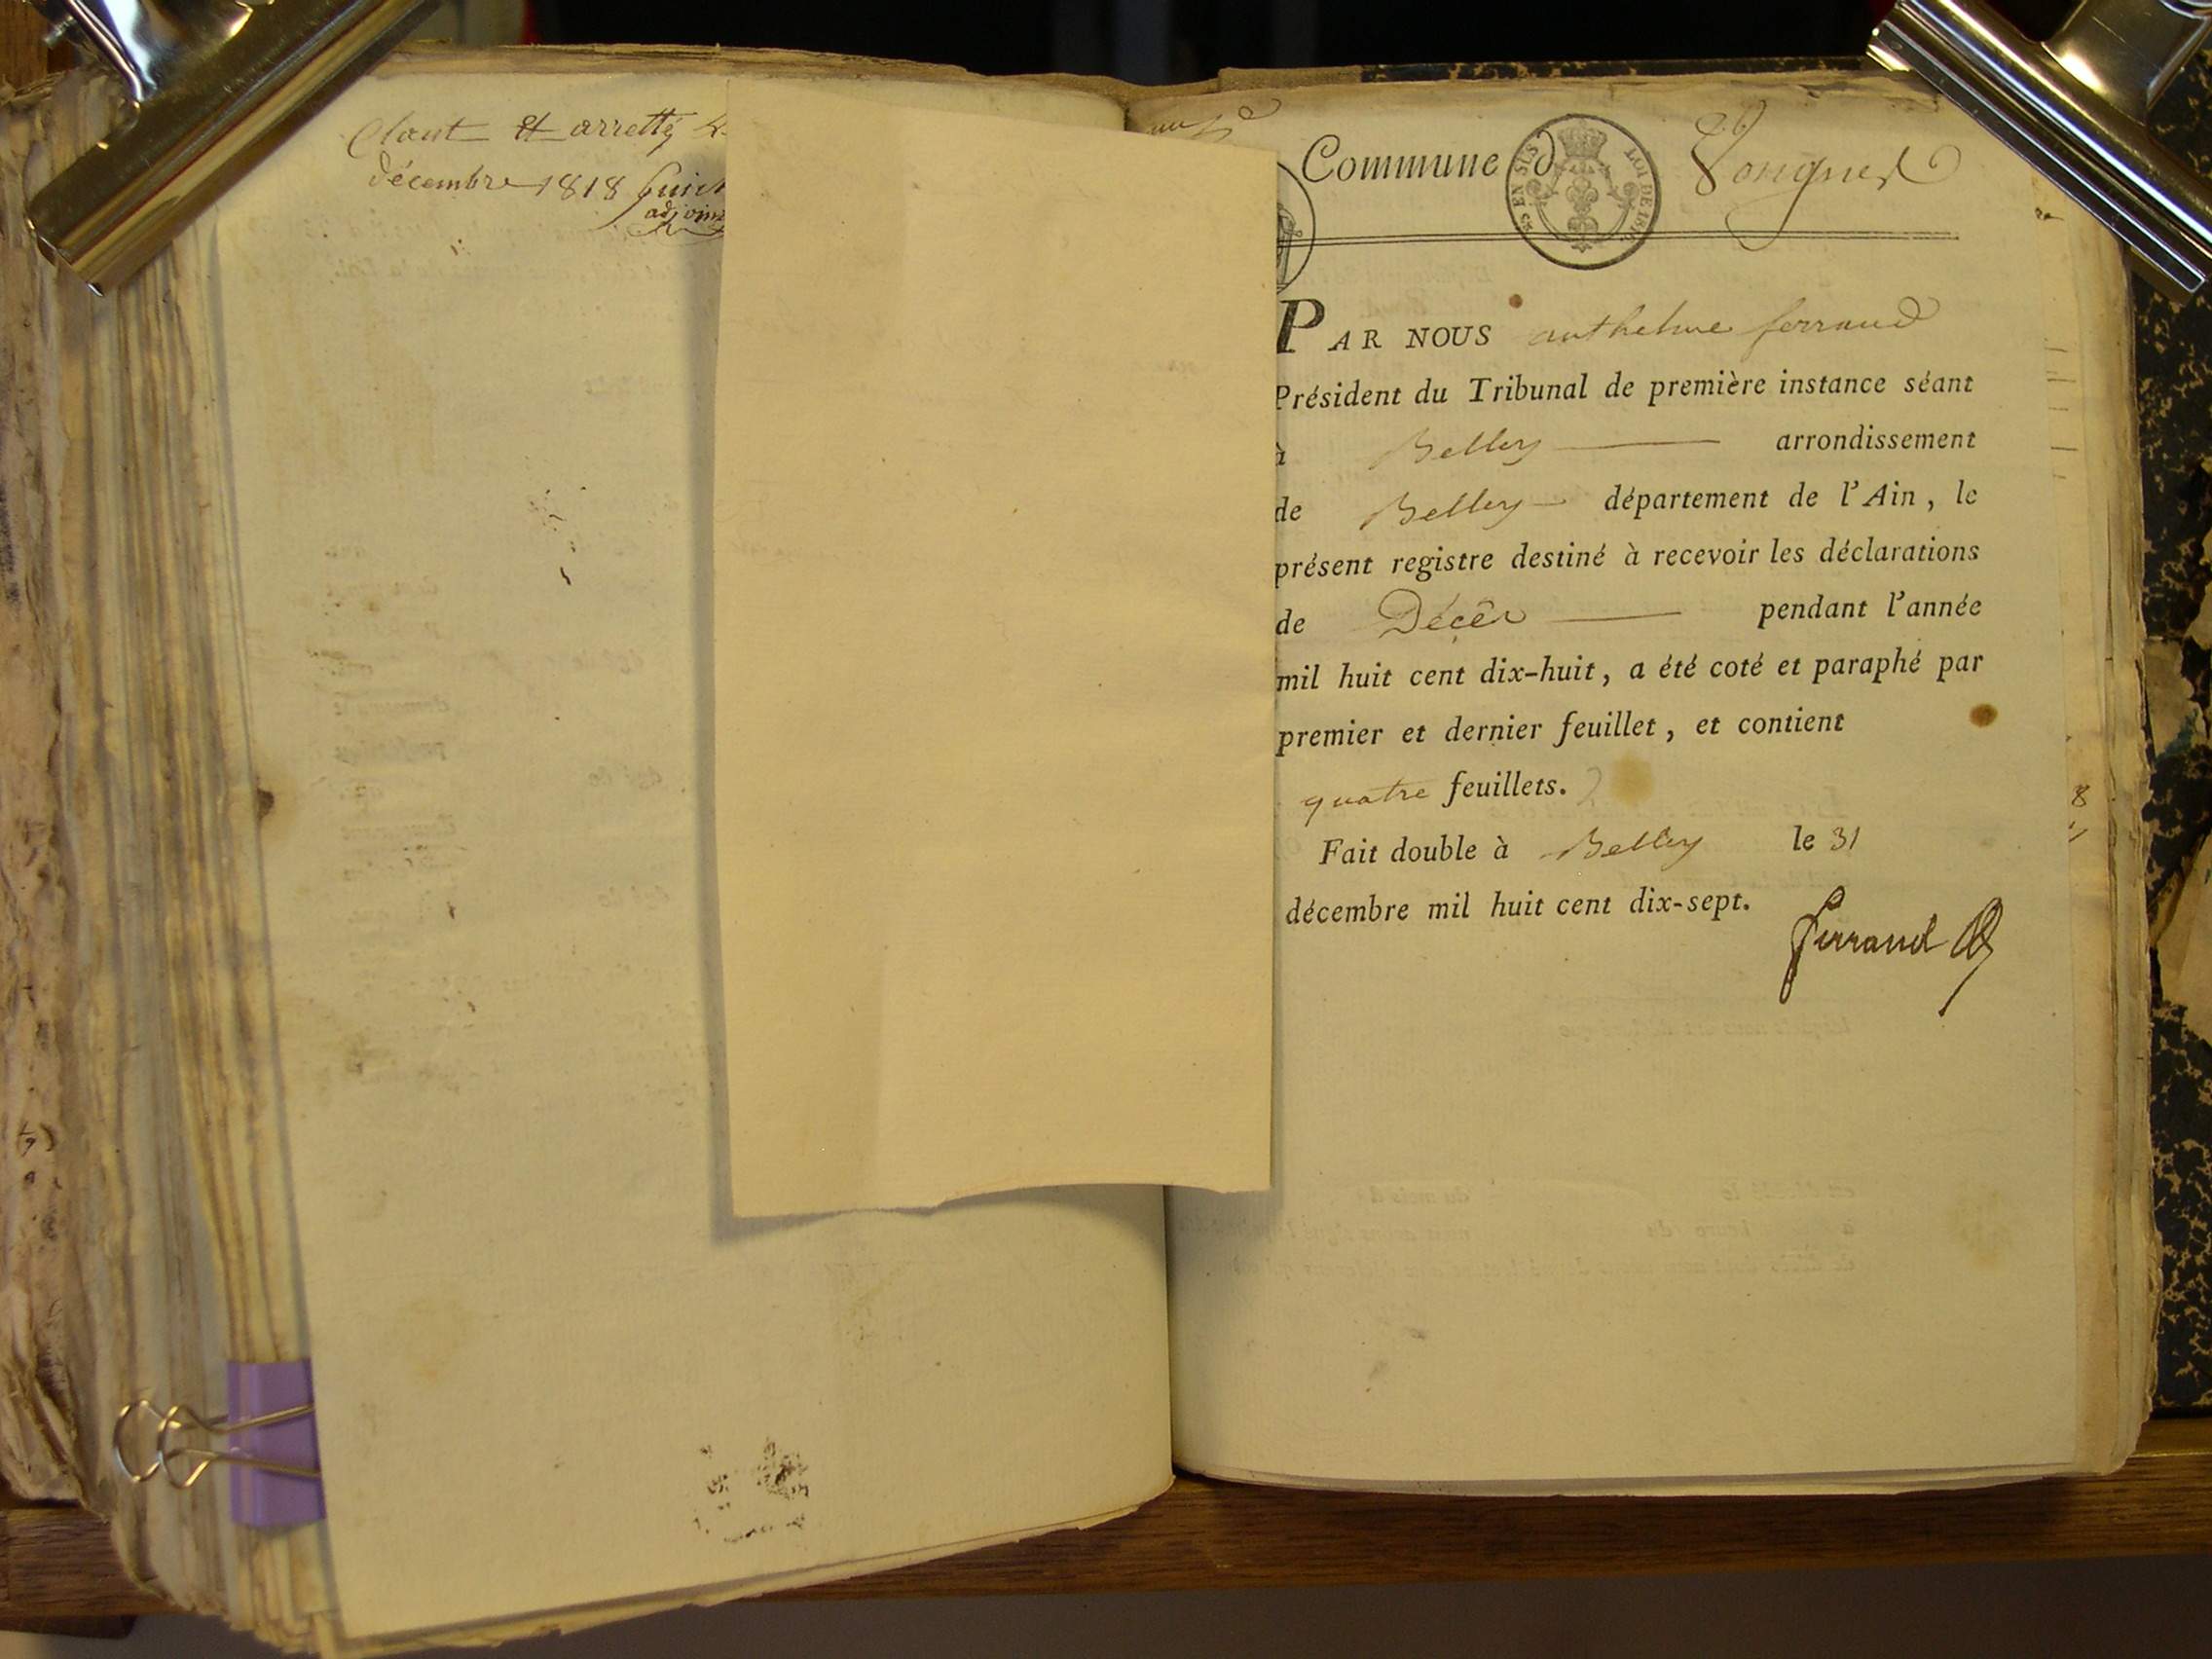 Clout Et arretté
décembre 1818
adjoint
Commune d Vongnes
CS EN SUS
LOI DE 1816.
PAR NOUS anthelme ferrand
Président du Tribunal de première instance séant
à Belley arrondissement
de Belley département de l'Ain, le
présent registre destiné à recevoir les déclarations
de Décès pendant l'année
mil huit cent dix-huit, a été coté et paraphé par
premier et dernier feuillet, et contient
quatre feuillets.
Fait double à Belley le 31
décembre mil huit cent dix-sept.
ferrand